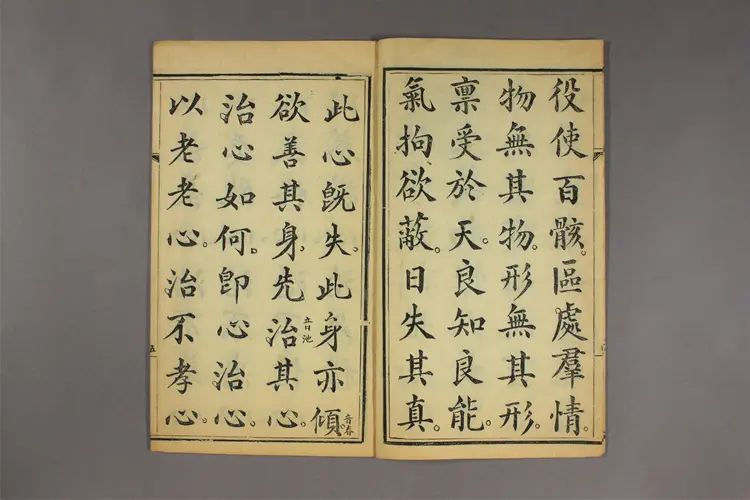 役使百骸。區處羣情。
物無其物。形無其形。
稟受於天。良知良能。
氣拘欲蔽。日失其真。
此心旣失。此身亦傾。
欲善其身。先治其心。
治心如何。卽心治心。
以老老心。治不孝心。
五